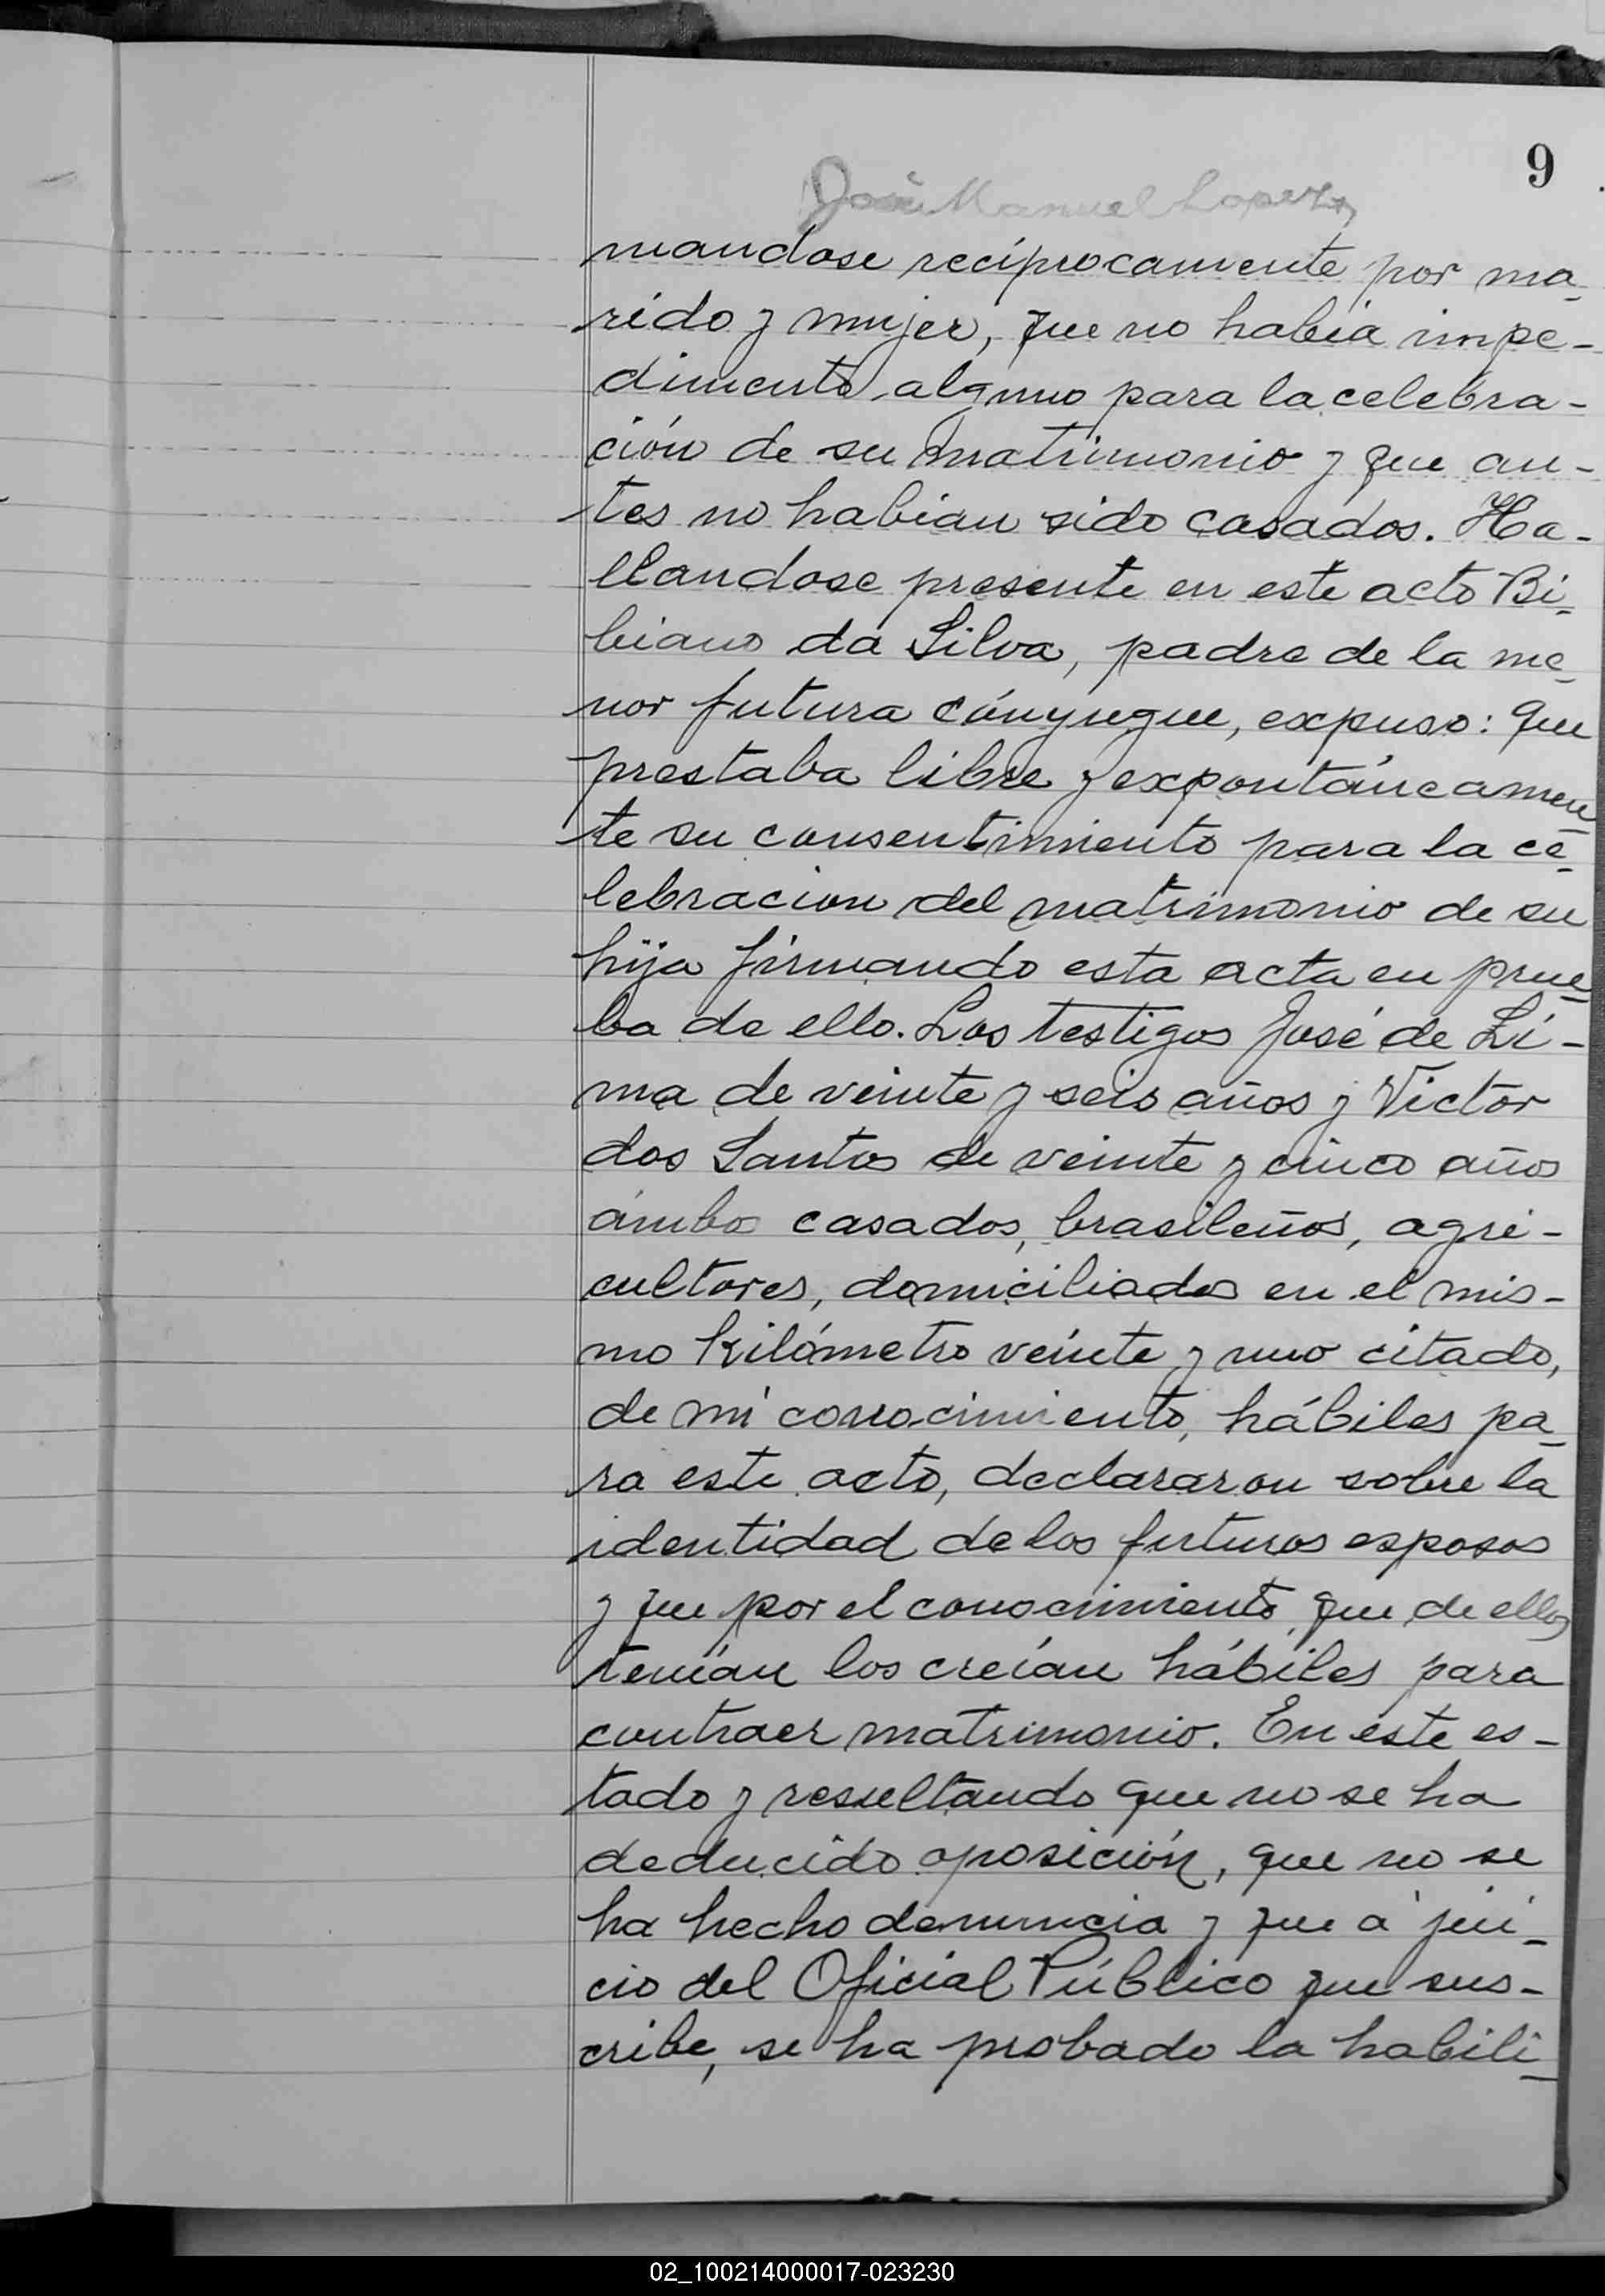 9
José Manuel Lopez
mandose recíprocamente por ma-
rido y mujer, que no había impe-
dimento alguno para la celebra-
ción de su matrimonio y que an-
tes no habian sido casados. Ha-
llandose presente en este acto Bi-
biano da Silva, padre de la me-
nor futura cónyugue, expuso: que
prestaba libre y expontáneamen-
te su consentimiento para la ce-
lebracion del matrimonio de su
hija firmando esta acta en prue-
ba de ello. Los testigos José de Li-
ma de veinte y seis años y Victor
dos Santos de veinte y cinco años
ámbos casados, brasileños, agri-
cultores, domiciliados en el mis-
mo kilómetro veinte y uno citado,
de mi conocimiento, hábiles pa-
ra este acto, declararon sobre la
identidad de los futuros esposos
y que por el conocimiento que de ellos
tenían los creían hábiles para
contraer matrimonio. En este es-
tado y resultando que no se ha
deducido oposición, que no se
ha hecho denuncia y que á jui-
cio del Oficial Público que sus-
cribe, se ha probado la habili-
02_100214000017-023230